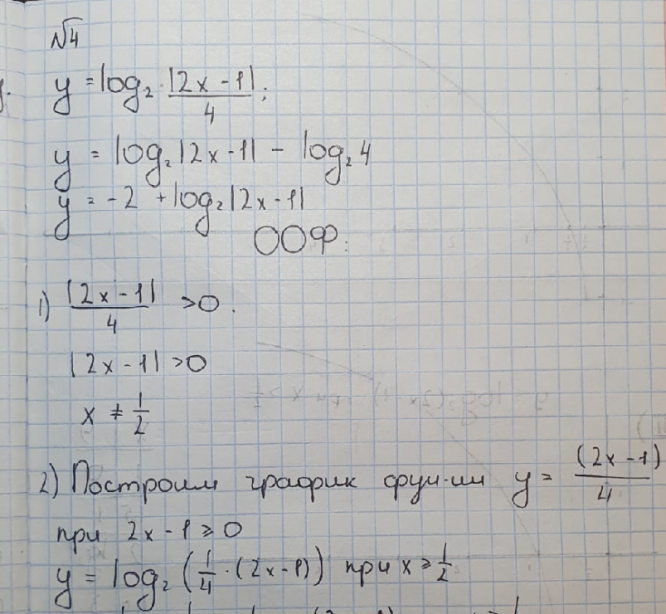 √4
y = log₂ |2x - 1|/4;
y = log₂|2x - 1| - log₂4
y = -2 + log₂|2x - 1|
ООФ:
1) |2x - 1|/4 > 0.
|2x - 1| > 0
x ≠ 1/2
2) Построим график фун-ии y = (2x - 1)/4
при 2x - 1 ≥ 0
y = log₂(1/4 · (2x - 1)) при x ≥ 1/2